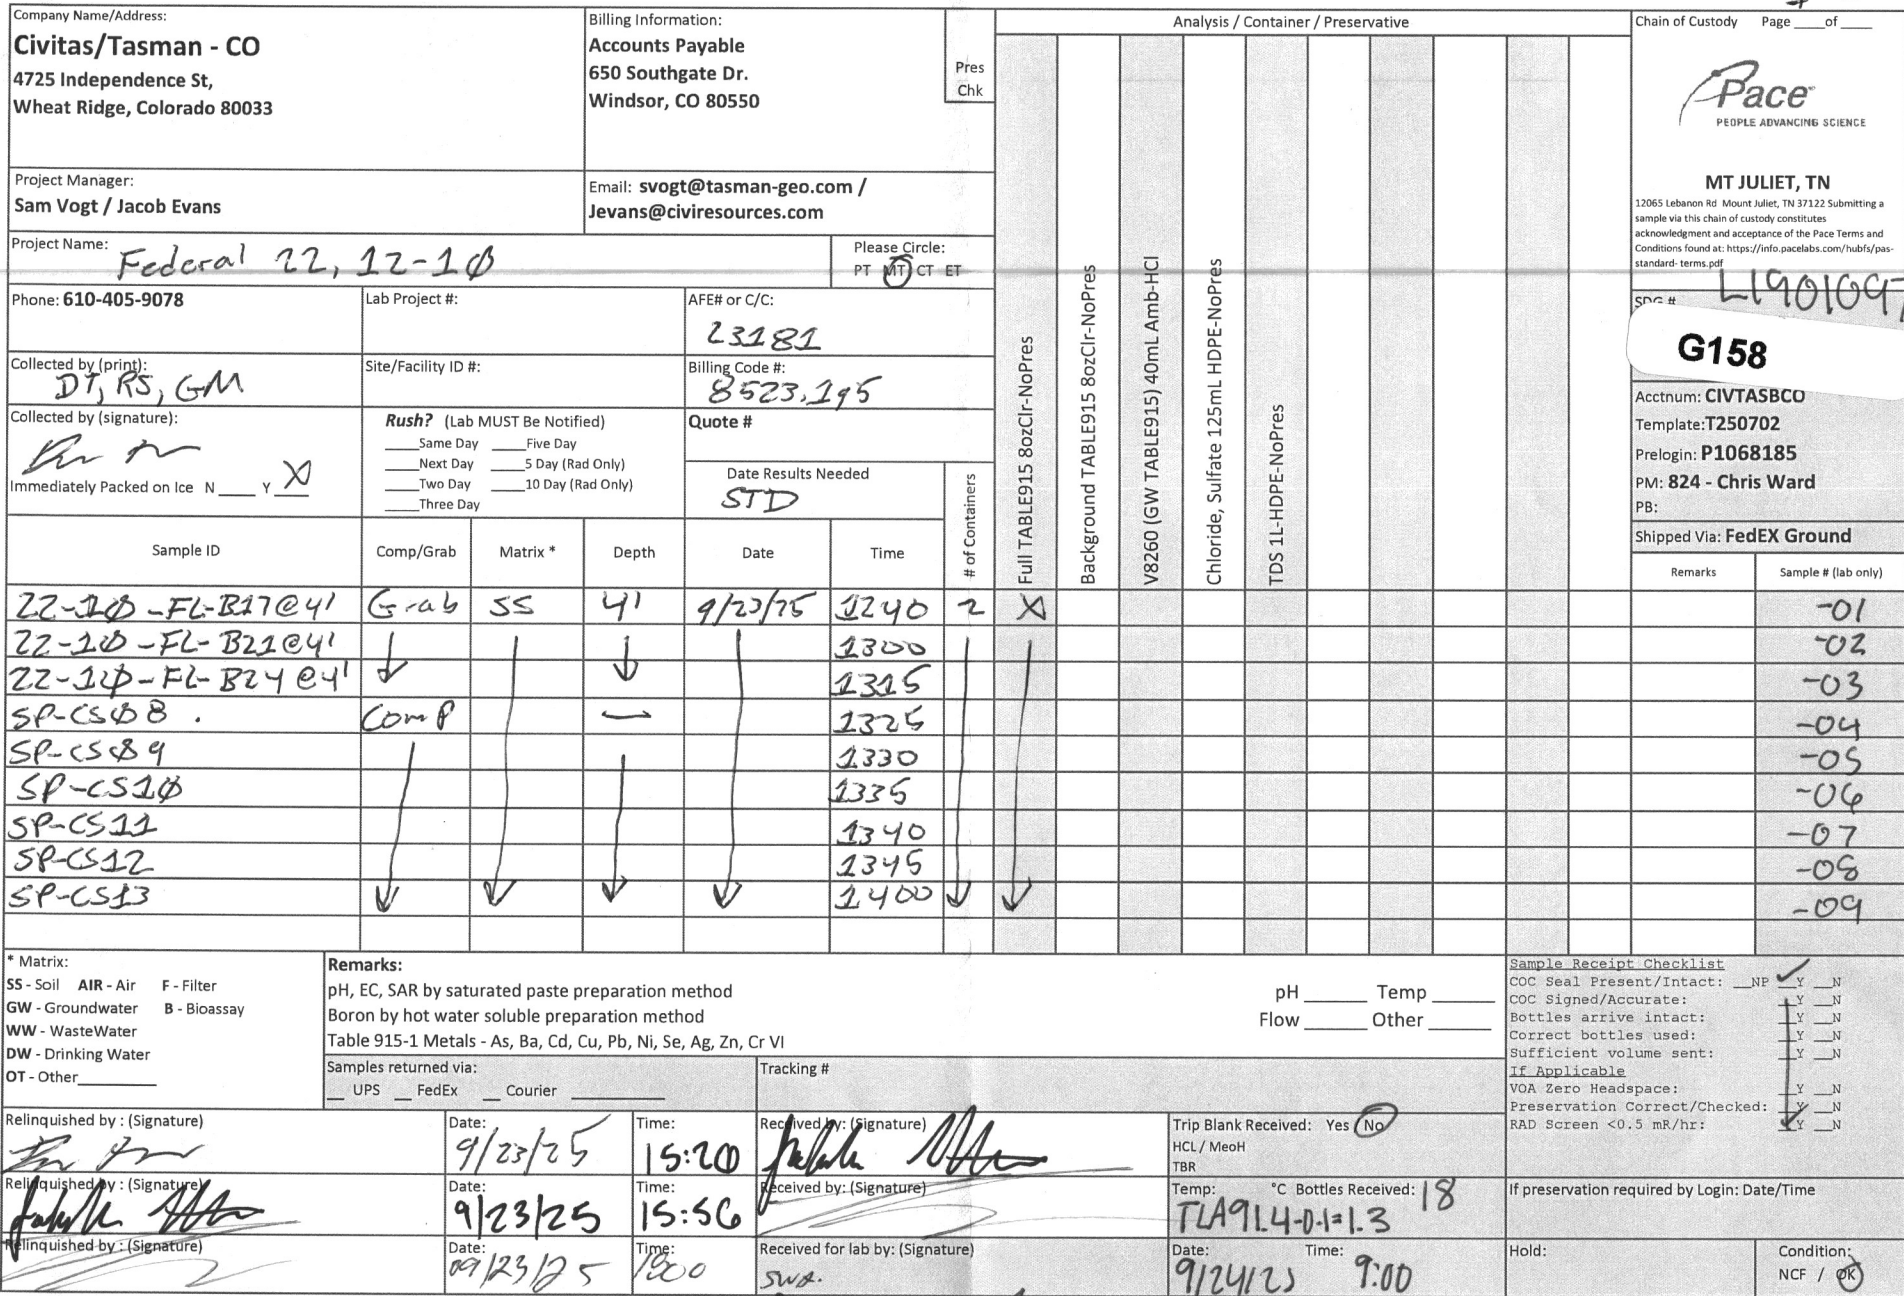 Company Name/Address:
Civitas/Tasman - CO
4725 Independence St,
Wheat Ridge, Colorado 80033
Billing Information:
Accounts Payable
650 Southgate Dr.
Windsor, CO 80550
Pres
Chk
Analysis / Container / Preservative
Chain of Custody Page ____of ____
Pace
PEOPLE ADVANCING SCIENCE
MT JULIET, TN
12065 Lebanon Rd Mount Juliet, TN 37122 Submitting a
sample via this chain of custody constitutes
acknowledgment and acceptance of the Pace Terms and
Conditions found at: https://info.pacelabs.com/hubfs/pas-
standard- terms.pdf
Project Manager:
Sam Vogt / Jacob Evans
Email: svogt@tasman-geo.com /
Jevans@civiresources.com
Project Name: Federal 22, 12-10
Please Circle:
PT MT CT ET
Phone: 610-405-9078
Lab Project #:
AFE# or C/C:
23181
SDG # L1901097
G158
Collected by (print):
DT, RS, GM
Site/Facility ID #:
Billing Code #:
8523.195
Acctnum: CIVTASBCO
Template:T250702
Prelogin: P1068185
PM: 824 - Chris Ward
PB:
Shipped Via: FedEX Ground
Collected by (signature):
Immediately Packed on Ice N ____ Y X
Rush? (Lab MUST Be Notified)
____Same Day ____Five Day
____Next Day ____5 Day (Rad Only)
____Two Day ____10 Day (Rad Only)
____Three Day
Quote #
Date Results Needed
STD
# of Containers
Full TABLE915 8ozClr-NoPres
Background TABLE915 8ozClr-NoPres
V8260 (GW TABLE915) 40mL Amb-HCl
Chloride, Sulfate 125mL HDPE-NoPres
TDS 1L-HDPE-NoPres
Sample ID Comp/Grab Matrix * Depth Date Time Remarks Sample # (lab only)
22-10-FL-B17@4' Grab SS 4' 9/23/25 1240 2 X -01
22-10-FL-B21@4' 1300 -02
22-10-FL-B24@4' 1315 -03
SP-CS08 . Comp — 1325 -04
SP-CS09 1330 -05
SP-CS10 1335 -06
SP-CS11 1340 -07
SP-CS12 1345 -08
SP-CS13 1400 -09
* Matrix:
SS - Soil AIR - Air F - Filter
GW - Groundwater B - Bioassay
WW - WasteWater
DW - Drinking Water
OT - Other____
Remarks:
pH, EC, SAR by saturated paste preparation method
Boron by hot water soluble preparation method
Table 915-1 Metals - As, Ba, Cd, Cu, Pb, Ni, Se, Ag, Zn, Cr VI
pH ____ Temp ____
Flow ____ Other ____
Samples returned via:
__ UPS __ FedEx __ Courier ____
Tracking #
Sample Receipt Checklist
COC Seal Present/Intact: __NP ✓Y __N
COC Signed/Accurate: __Y __N
Bottles arrive intact: __Y __N
Correct bottles used: __Y __N
Sufficient volume sent: __Y __N
If Applicable
VOA Zero Headspace: __Y __N
Preservation Correct/Checked: __Y __N
RAD Screen <0.5 mR/hr: __Y __N
Relinquished by : (Signature)
Date: 9/23/25
Time: 15:20
Received by: (Signature)
Trip Blank Received: Yes No
HCL / MeoH
TBR
Relinquished by : (Signature)
Date: 9/23/25
Time: 15:56
Received by: (Signature)
Temp: °C Bottles Received: 18
TLA9 1.4-0.1=1.3
If preservation required by Login: Date/Time
Relinquished by : (Signature)
Date: 09/23/25
Time: 1800
Received for lab by: (Signature)
Date: 9/24/25
Time: 9:00
Hold:
Condition:
NCF / OK